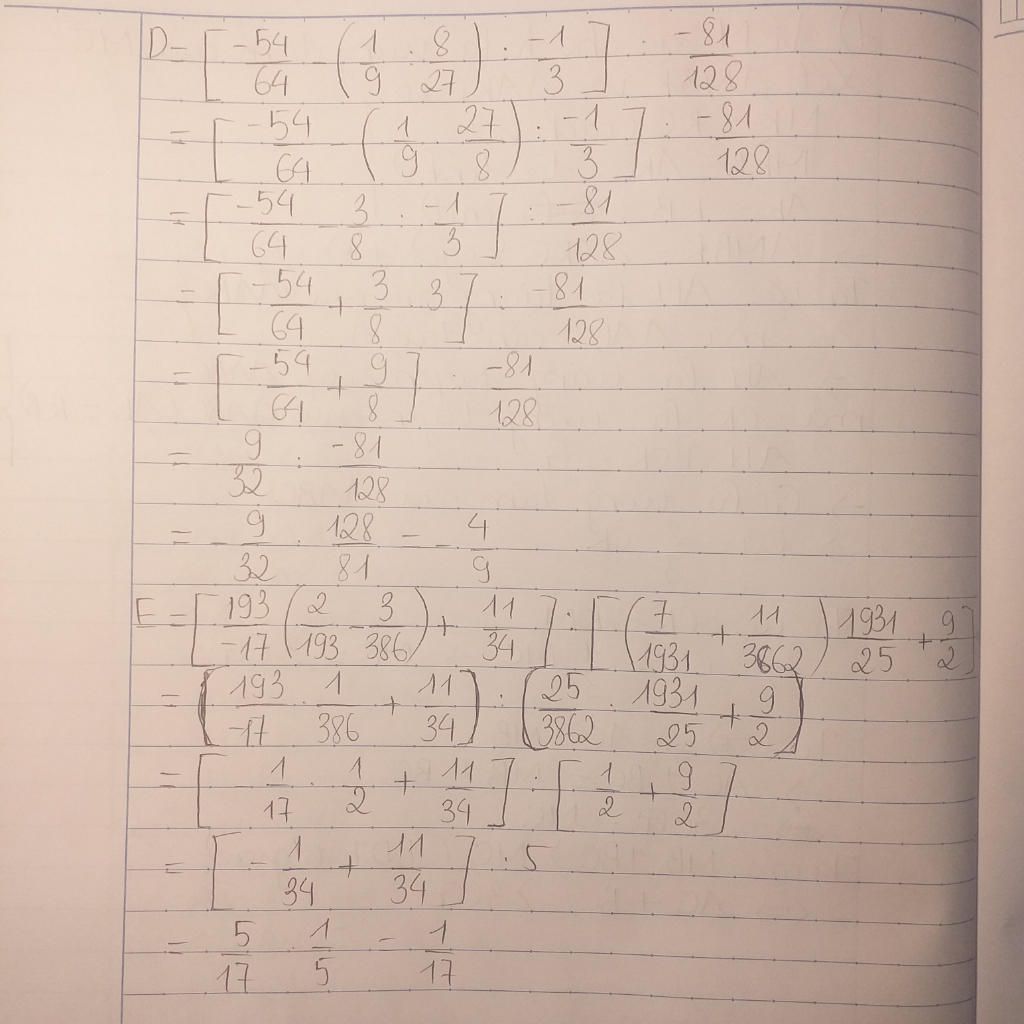 D = [ -54/64 - ( 1/9 : 8/27 ) : -1/3 ] : -81/128
= [ -54/64 - ( 1/9 . 27/8 ) : -1/3 ] : -81/128
= [ -54/64 - 3/8 : -1/3 ] : -81/128
= [ -54/64 + 3/8 . 3 ] : -81/128
= [ -54/64 + 9/8 ] : -81/128
= 9/32 : -81/128
= - 9/32 . 128/81 = - 4/9
E = [ 193/-17 ( 2/193 - 3/386 ) + 11/34 ] : [ ( 7/1931 + 11/3862 ) 1931/25 + 9/2 ]
= ( 193/-17 . 1/386 + 11/34 ) : ( 25/3862 . 1931/25 + 9/2 )
= [ - 1/17 . 1/2 + 11/34 ] : [ 1/2 + 9/2 ]
= [ - 1/34 + 11/34 ] : 5
= 5/17 . 1/5 = 1/17